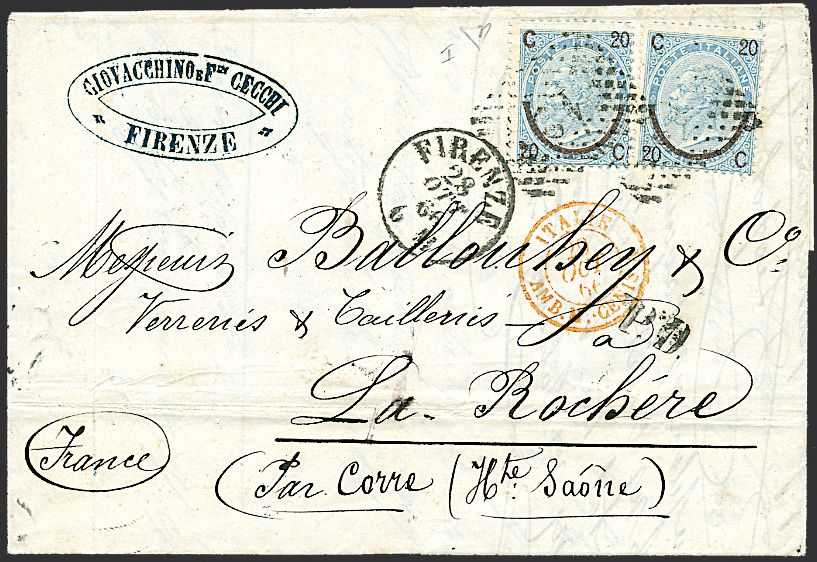 C 20
POSTE ITALIANE
20 C
C 20
POSTE ITALIANE
20 C
GIOVACCHINO E F.lli CECCHI
" FIRENZE "
FIRENZE
28
OTT
66
ITALIE
OCT
66
AMB. M. CENIS
P.D.
Messieurs Ballouhey & Co
Verreries & Tailleries à
La Rochère
France
(Par Corre (Hte Saône)